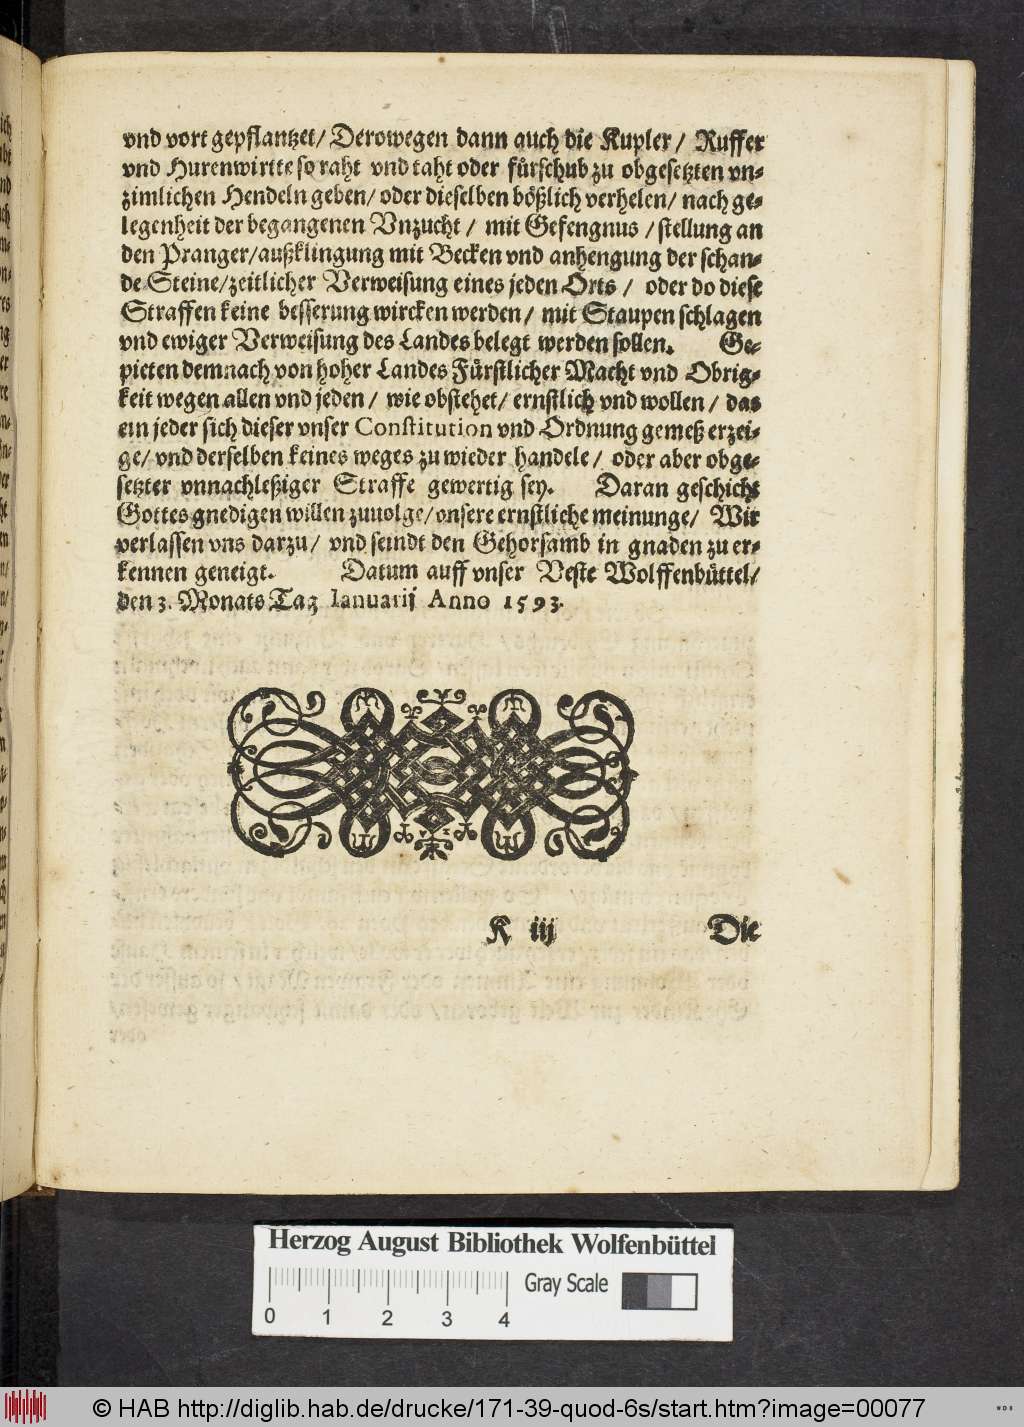 vnd vort gepflantzet/ Derowegen dann auch die Kupler/ Ruffer
vnd Hurenwirtte so raht vnd taht oder fürschub zu obgesetzten vn-
zimlichen Hendeln geben/ oder dieselben bößlich verhelen/ nach ge-
legenheit der begangenen Vnzucht/ mit Gefengnus/ stellung an
den Pranger/ außklingung mit Becken vnd anhengung der schan-
de Steine/ zeitlicher Verweisung eines jeden Orts/ oder do diese
Straffen keine besserung wircken werden/ mit Staupen schlagen
vnd ewiger Verweisung des Landes belegt werden sollen. Ge-
pieten demnach von hoher Landes Fürstlicher Macht vnd Obrig-
keit wegen allen vnd jeden/ wie obstehet/ ernstlich vnd wollen/ das
ein jeder sich dieser vnser Constitution vnd Ordnung gemeß erzei-
ge/ vnd derselben keines weges zu wieder handele/ oder aber obge-
setzter vnnachleßiger Straffe gewertig sey. Daran geschicht
Gottes gnedigen willen zuuolge/ vnsere ernstliche meinunge/ Wir
verlassen vns darzu/ vnd seindt den Gehorsamb in gnaden zu er-
kennen geneigt. Datum auff vnser Veste Wolffenbüttel/
den 3. Monats Tag Ianuarij Anno 1593.
K iij Die
Herzog August Bibliothek Wolfenbüttel
Gray Scale
0 1 2 3 4
© HAB http://diglib.hab.de/drucke/171-39-quod-6s/start.htm?image=00077